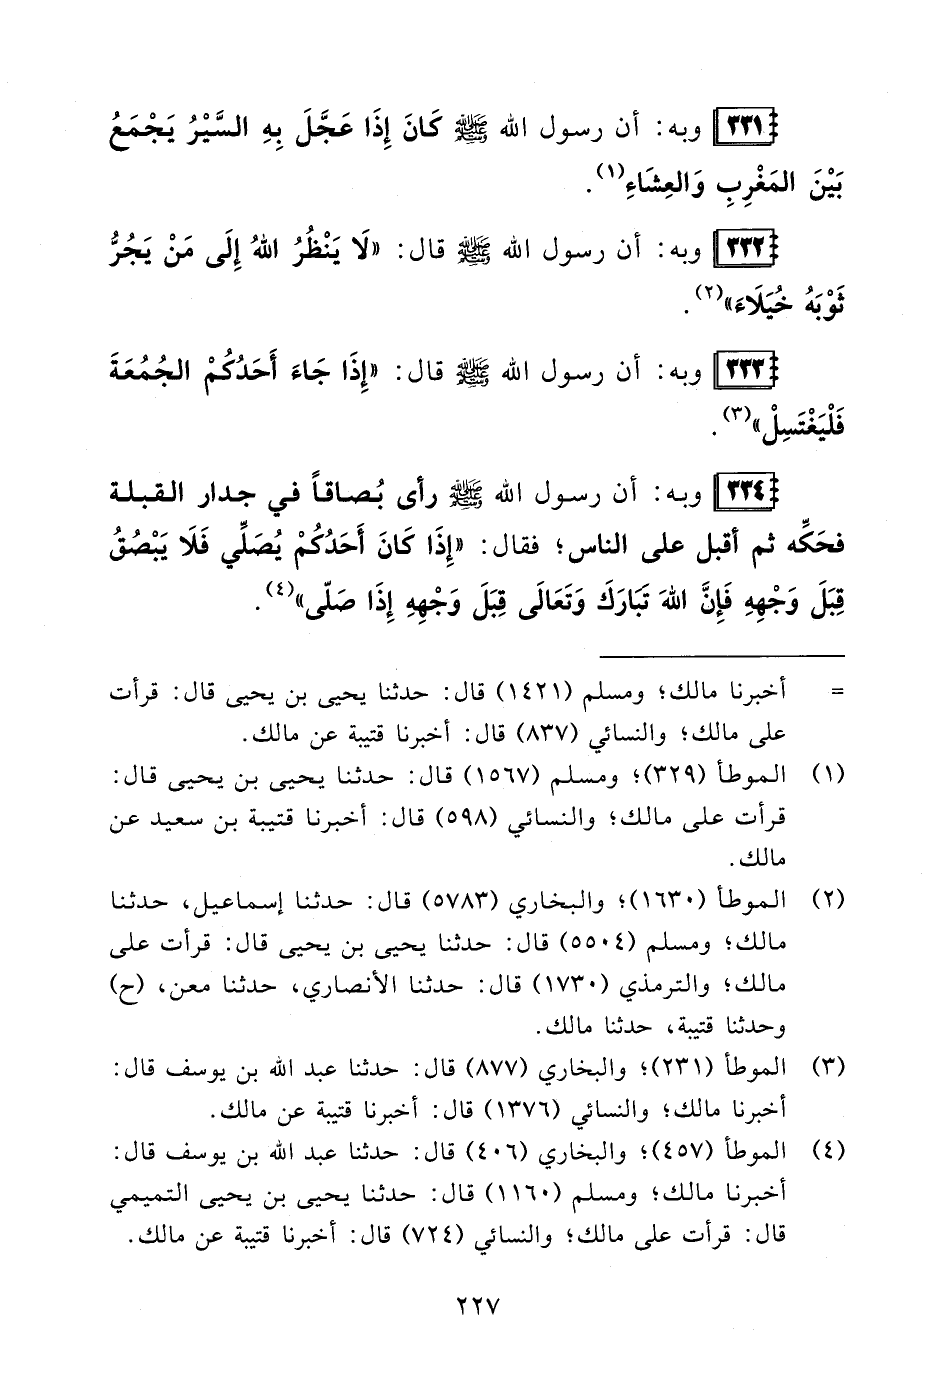 ٣٣١ وبه: أن رسول الله ﷺ كَانَ إِذَا عَجَّلَ بِهِ السَّيْرُ يَجْمَعُ
بَيْنَ المَغْرِبِ وَالعِشَاءِ(١).
٣٣٢ وبه: أن رسول الله ﷺ قال: «لَا يَنْظُرُ اللهُ إِلَى مَنْ يَجُرُّ
ثَوْبَهُ خُيَلَاءَ»(٢).
٣٣٣ وبه: أن رسول الله ﷺ قال: «إِذَا جَاءَ أَحَدُكُمْ الجُمُعَةَ
فَلْيَغْتَسِلْ»(٣).
٣٣٤ وبه: أن رسول الله ﷺ رأى بُصاقاً في جدار القبلة
فحَكِّه ثم أقبل على الناس؛ فقال: «إِذَا كَانَ أَحَدُكُمْ يُصَلِّي فَلَا يَبْصُقُ
قِبَلَ وَجْهِهِ فَإِنَّ اللهَ تَبَارَكَ وَتَعَالَى قِبَلَ وَجْهِهِ إِذَا صَلّى»(٤).
= أخبرنا مالك؛ ومسلم (١٤٢١) قال: حدثنا يحيى بن يحيى قال: قرأت
على مالك؛ والنسائي (٨٣٧) قال: أخبرنا قتيبة عن مالك.
(١) الموطأ (٣٢٩)؛ ومسلم (١٥٦٧) قال: حدثنا يحيى بن يحيى قال:
قرأت على مالك؛ والنسائي (٥٩٨) قال: أخبرنا قتيبة بن سعيد عن
مالك.
(٢) الموطأ (١٦٣٠)؛ والبخاري (٥٧٨٣) قال: حدثنا إسماعيل، حدثنا
مالك؛ ومسلم (٥٥٠٤) قال: حدثنا يحيى بن يحيى قال: قرأت على
مالك؛ والترمذي (١٧٣٠) قال: حدثنا الأنصاري، حدثنا معن، (ح)
وحدثنا قتيبة، حدثنا مالك.
(٣) الموطأ (٢٣١)؛ والبخاري (٨٧٧) قال: حدثنا عبد الله بن يوسف قال:
أخبرنا مالك؛ والنسائي (١٣٧٦) قال: أخبرنا قتيبة عن مالك.
(٤) الموطأ (٤٥٧)؛ والبخاري (٤٠٦) قال: حدثنا عبد الله بن يوسف قال:
أخبرنا مالك؛ ومسلم (١١٦٠) قال: حدثنا يحيى بن يحيى التميمي
قال: قرأت على مالك؛ والنسائي (٧٢٤) قال: أخبرنا قتيبة عن مالك.
٢٢٧